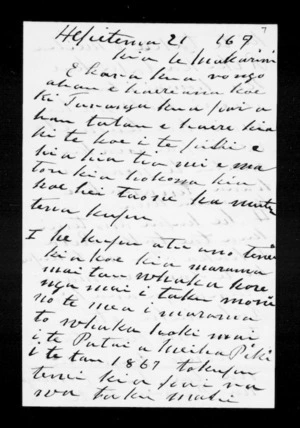 7
Hepetema 21 /69
Kia te Makarini
E hara kua rongo
ahau e haere ana koe
ki Turanga kua pai a
hau tatau e haere kia
ki te koe i te piki e
hia kia toi nei e ma
tou kia hokona kia
koe hei taone ka mutu
tena kupu
I he kupu atu ano tenei
kia koe kia marama
mai tau whaka hore
nga mai i taku moni
no te mea i marama
to whaka hoki mai
i te Patai a Meiha Piki
i te tau 1867 to kupu
tenei kia pai na
wa taku mahi